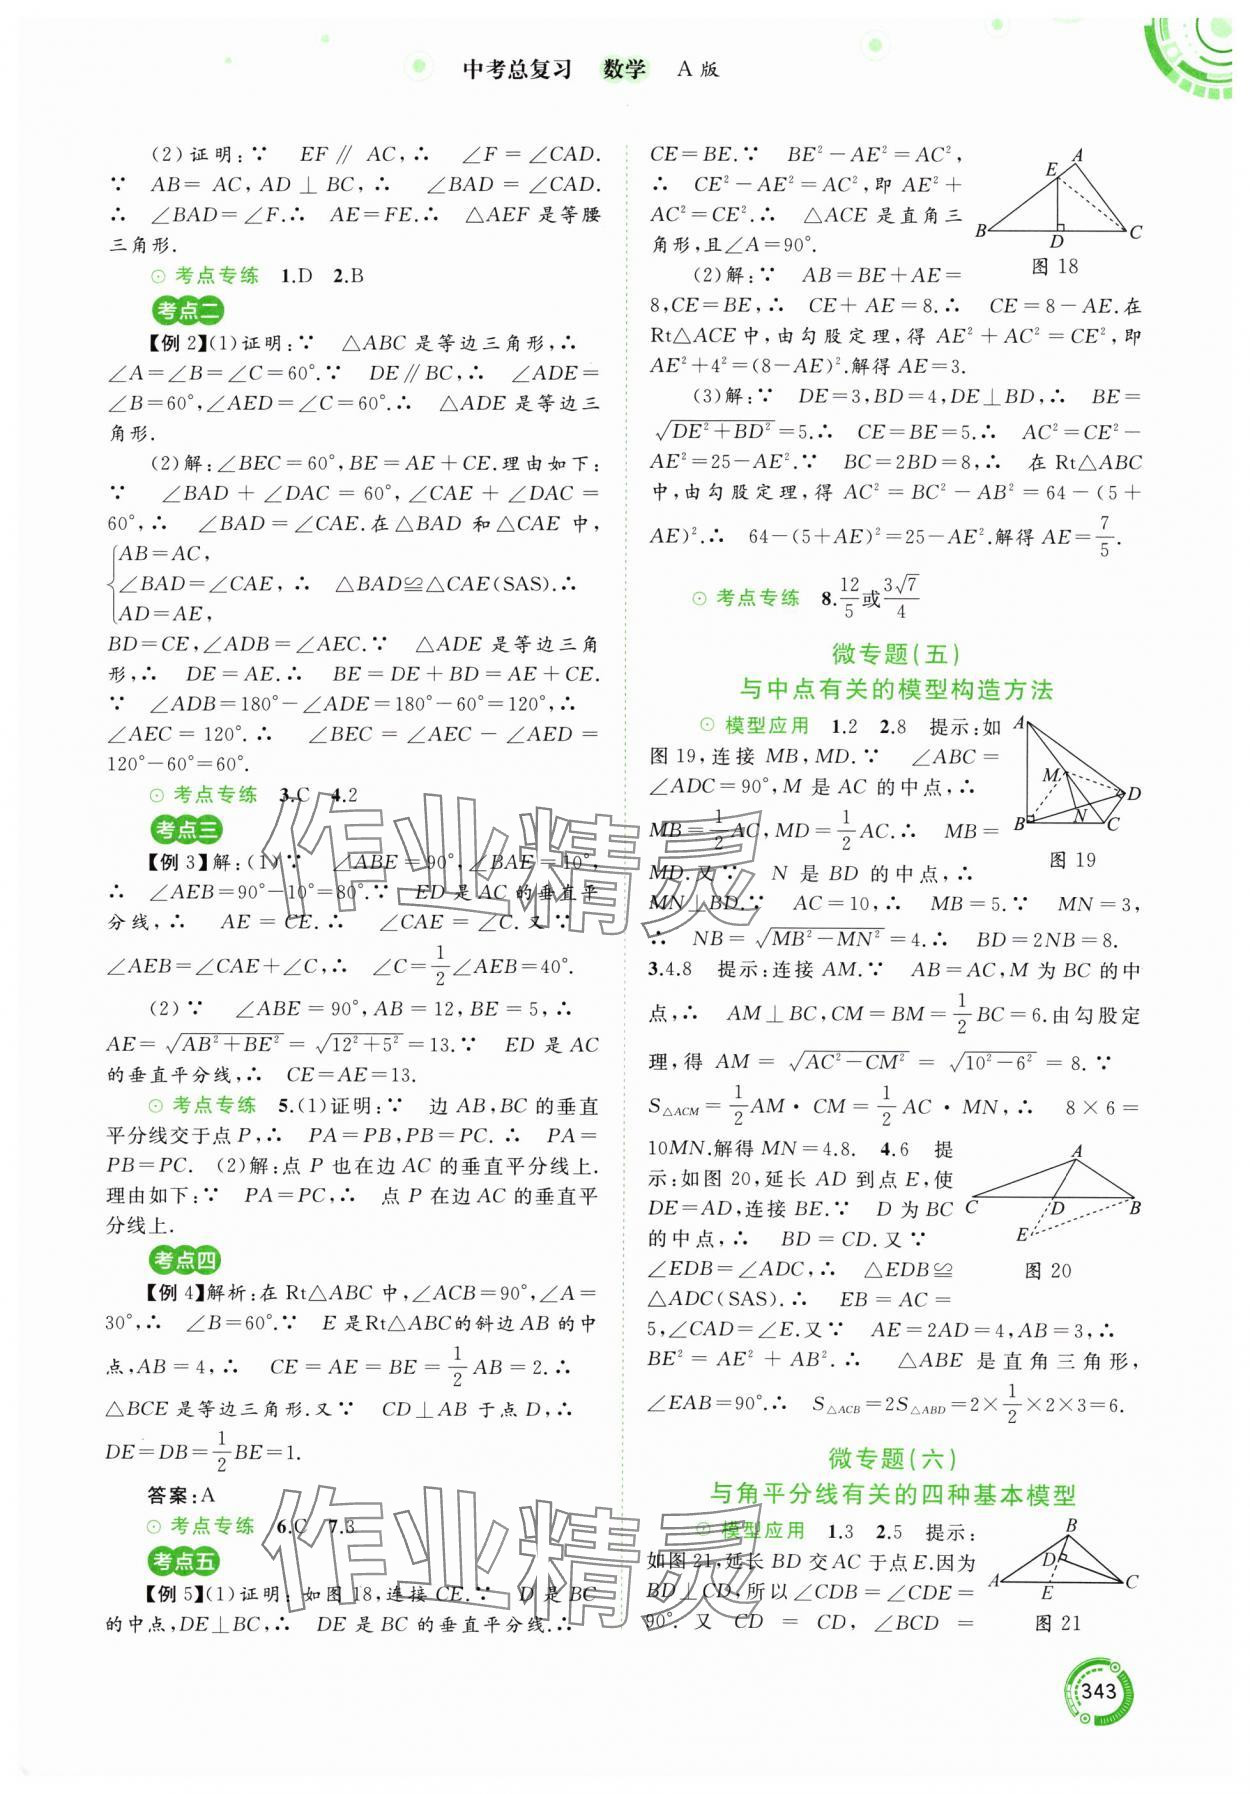 中考总复习 数学 A版
(2)证明:∵ EF∥AC,∴ ∠F=∠CAD.
∵ AB=AC,AD⊥BC,∴ ∠BAD=∠CAD.
∴ ∠BAD=∠F.∴ AE=FE.∴ △AEF是等腰
三角形.
考点专练 1.D 2.B
考点二
【例2】(1)证明:∵ △ABC是等边三角形,∴
∠A=∠B=∠C=60°.∵ DE∥BC,∴ ∠ADE=
∠B=60°,∠AED=∠C=60°.∴ △ADE是等边三
角形.
(2)解:∠BEC=60°,BE=AE+CE.理由如下:
∵ ∠BAD+∠DAC=60°,∠CAE+∠DAC=
60°,∴ ∠BAD=∠CAE.在△BAD和△CAE中,
{AB=AC,
∠BAD=∠CAE,∴ △BAD≌△CAE(SAS).∴
AD=AE,
BD=CE,∠ADB=∠AEC.∵ △ADE是等边三角
形,∴ DE=AE.∴ BE=DE+BD=AE+CE.
∵ ∠ADB=180°-∠ADE=180°-60°=120°,∴
∠AEC=120°.∴ ∠BEC=∠AEC-∠AED=
120°-60°=60°.
考点专练 3.C 4.2
考点三
【例3】解:(1)∵ ∠ABE=90°,∠BAE=10°,
∴ ∠AEB=90°-10°=80°.∵ ED是AC的垂直平
分线,∴ AE=CE.∴ ∠CAE=∠C.又∵
∠AEB=∠CAE+∠C,∴ ∠C=1/2∠AEB=40°.
(2)∵ ∠ABE=90°,AB=12,BE=5,∴
AE=√(AB²+BE²)=√(12²+5²)=13.∵ ED是AC
的垂直平分线,∴ CE=AE=13.
考点专练 5.(1)证明:∵ 边AB,BC的垂直
平分线交于点P,∴ PA=PB,PB=PC.∴ PA=
PB=PC. (2)解:点P也在边AC的垂直平分线上.
理由如下:∵ PA=PC,∴ 点P在边AC的垂直平
分线上.
考点四
【例4】解析:在Rt△ABC中,∠ACB=90°,∠A=
30°,∴ ∠B=60°.∵ E是Rt△ABC的斜边AB的中
点,AB=4,∴ CE=AE=BE=1/2AB=2.∴
△BCE是等边三角形.又∵ CD⊥AB于点D,∴
DE=DB=1/2BE=1.
答案:A
考点专练 6.C 7.3
考点五
【例5】(1)证明:如图18,连接CE.∵ D是BC
的中点,DE⊥BC,∴ DE是BC的垂直平分线.∴
CE=BE.∵ BE²-AE²=AC²,
∴ CE²-AE²=AC²,即AE²+
AC²=CE².∴ △ACE是直角三
角形,且∠A=90°.
A
E
B
D
C
图18
(2)解:∵ AB=BE+AE=
8,CE=BE,∴ CE+AE=8.∴ CE=8-AE.在
Rt△ACE中,由勾股定理,得AE²+AC²=CE²,即
AE²+4²=(8-AE)².解得AE=3.
(3)解:∵ DE=3,BD=4,DE⊥BD,∴ BE=
√(DE²+BD²)=5.∴ CE=BE=5.∴ AC²=CE²-
AE²=25-AE².∵ BC=2BD=8,∴ 在Rt△ABC
中,由勾股定理,得AC²=BC²-AB²=64-(5+
AE)².∴ 64-(5+AE)²=25-AE².解得AE=7/5.
考点专练 8.12/5或3√7/4
微专题(五)
与中点有关的模型构造方法
模型应用 1.2 2.8 提示:如
图19,连接MB,MD.∵ ∠ABC=
∠ADC=90°,M是AC的中点,∴
MB=1/2AC,MD=1/2AC.∴ MB=
MD.又∵ N是BD的中点,∴
MN⊥BD.∵ AC=10,∴ MB=5.∵ MN=3,
∴ NB=√(MB²-MN²)=4.∴ BD=2NB=8.
A
M
D
B
N
C
图19
3.4.8 提示:连接AM.∵ AB=AC,M为BC的中
点,∴ AM⊥BC,CM=BM=1/2BC=6.由勾股定
理,得AM=√(AC²-CM²)=√(10²-6²)=8.∵
S△ACM=1/2AM·CM=1/2AC·MN,∴ 8×6=
10MN.解得MN=4.8. 4.6 提
示:如图20,延长AD到点E,使
DE=AD,连接BE.∵ D为BC
的中点,∴ BD=CD.又∵
∠EDB=∠ADC,∴ △EDB≌
△ADC(SAS).∴ EB=AC=
5,∠CAD=∠E.又∵ AE=2AD=4,AB=3,∴
BE²=AE²+AB².∴ △ABE是直角三角形,
∠EAB=90°.∴ S△ACB=2S△ABD=2×1/2×2×3=6.
A
C
D
B
E
图20
微专题(六)
与角平分线有关的四种基本模型
模型应用 1.3 2.5 提示:
如图21,延长BD交AC于点E.因为
BD⊥CD,所以∠CDB=∠CDE=
90°.又CD=CD,∠BCD=
B
D
A
E
C
图21
343
作业精灵
作业精灵